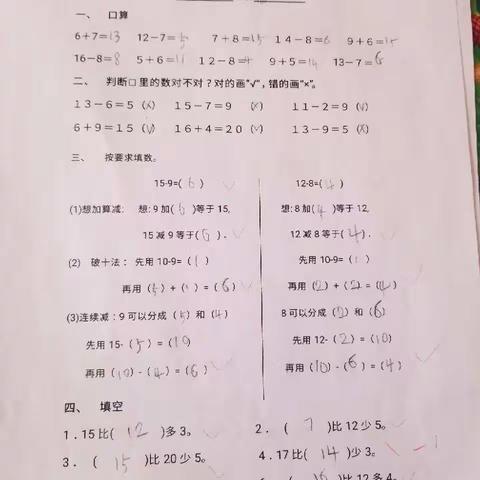 一、 口算
6+7=13 12-7=5 7+8=15 14-8=6 9+6=15
16-8=8 5+6=11 12-8=4 9+5=14 13-7=6
二、 判断□里的数对不对？对的画“√”，错的画“×”。
13-6=5（×） 15-7=9（×） 11-2=9（√）
6+9=15（√） 16+4=20（√） 13-9=5（×）
三、 按要求填数。
15-9=(6) 12-8=(4)
(1)想加算减： 想：9加(6)等于15, 想：8加(4)等于12,
15减9等于(6). 12减8等于(4).
(2) 破十法： 先用10-9=（1） 先用10-9=（1）
再用（5）+（1）=（6） 再用（2）+（2）=（4）
(3)连续减：9可以分成（5）和（4） 8可以分成（2）和（6）
先用15-（5）=（10） 先用12-（2）=（10）
再用（10）-（4）=（6） 再用（10）-（6）=（4）
四、 填空
1.15比( 12 )多3。 2.（ 7 ）比12少5。
3.（ 15 ）比20少5。 4.17比( 14 )少3。 -1
（ 16 ）比12多4。